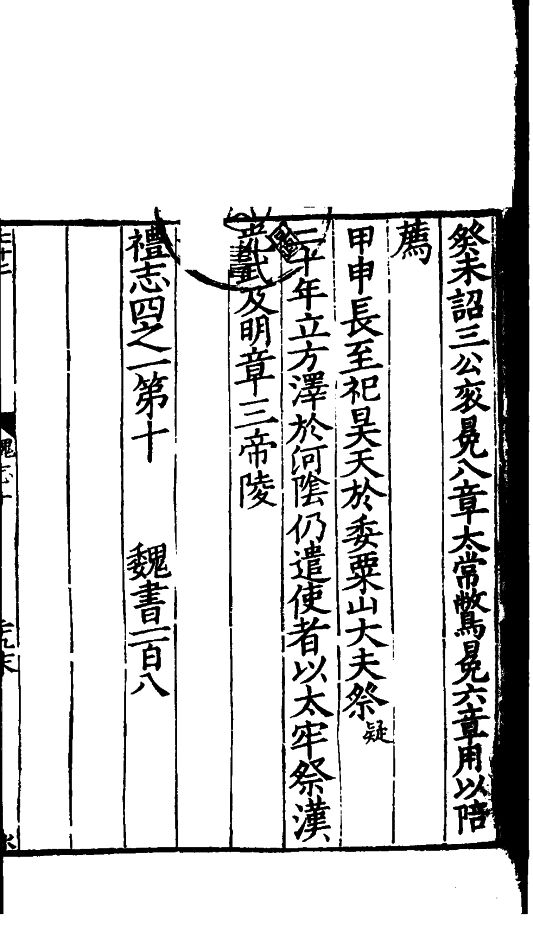 癸未詔三公衮冕八章太常鷩冕六章用以陪
薦
甲申長至祀昊天於委粟山大夫祭疑
二十年立方澤於河陰仍遣使者以太牢祭漢
光武及明章三帝陵
禮志四之一第十 魏書一百八
魏志十